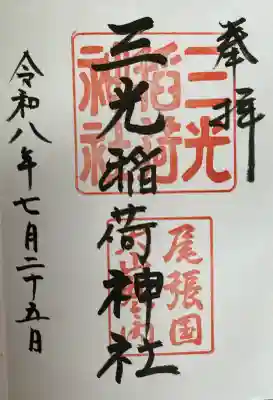 奉拝
三光稲荷神社
令和八年七月二十五日
三光
稲荷
神社
尾張国
犬山城内